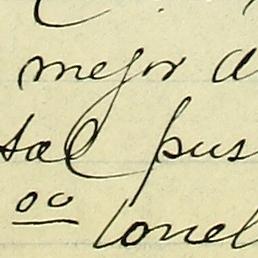 mejor a
sal pus
oo tonel